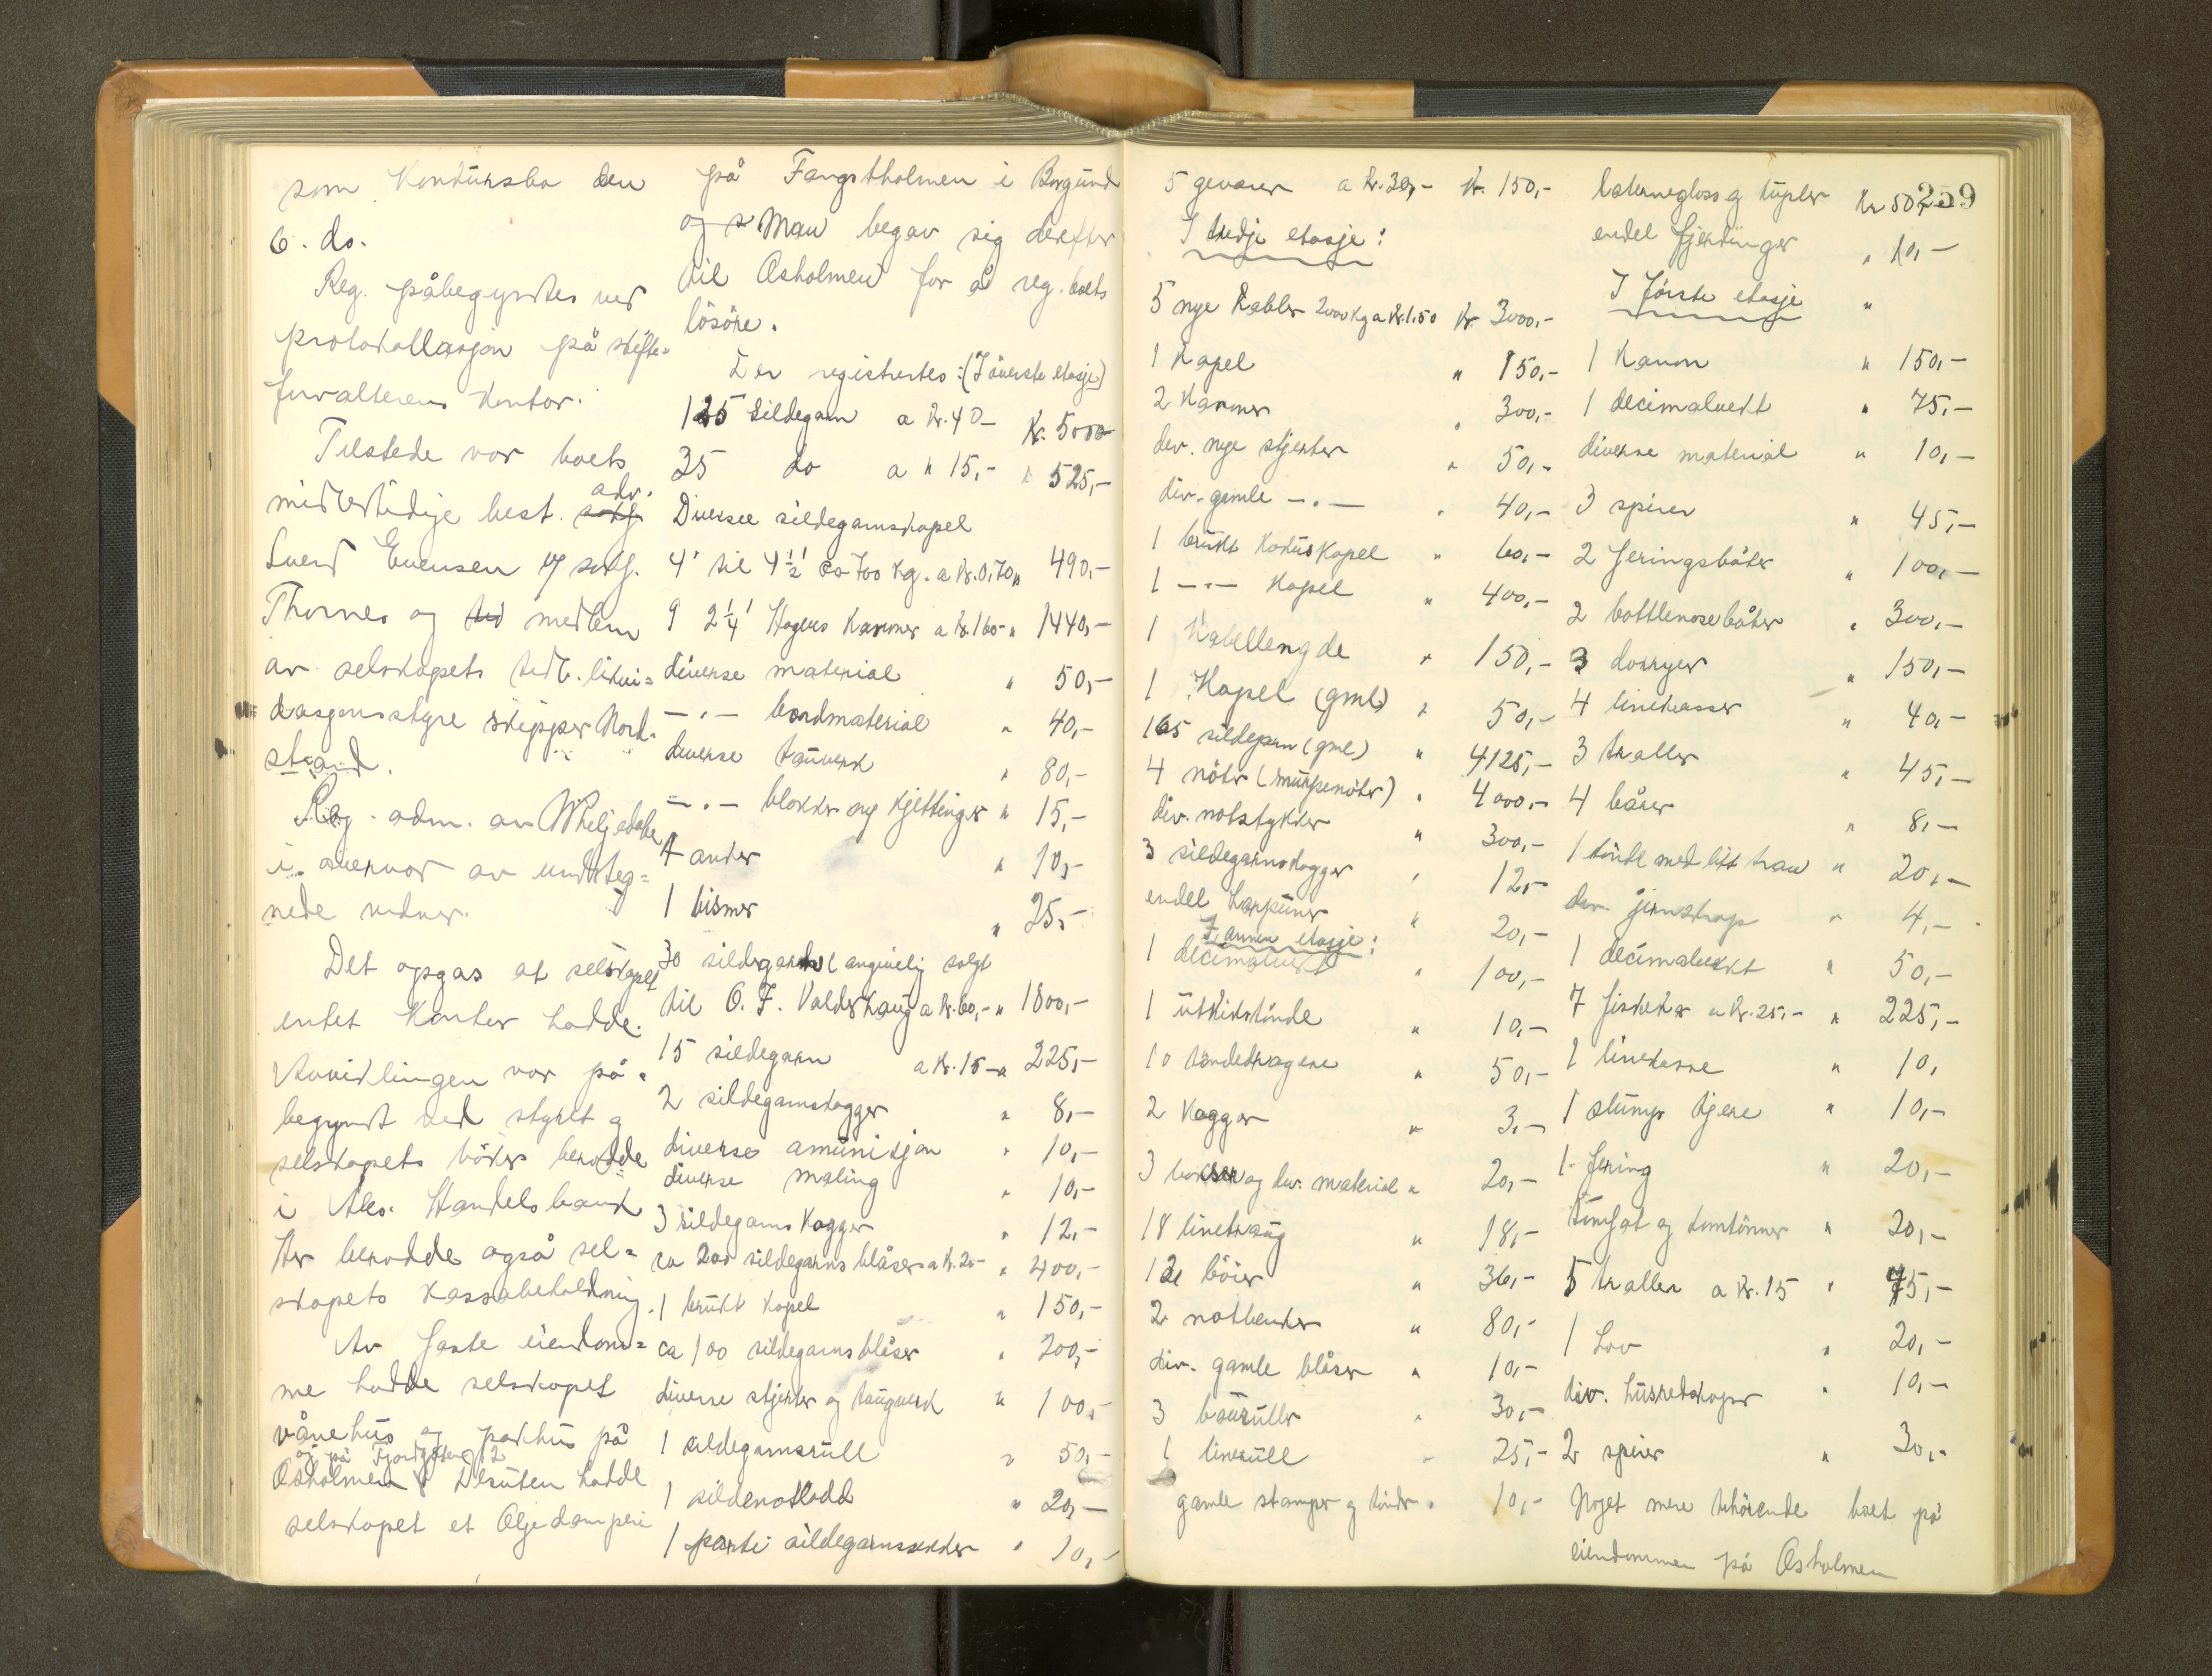 som Konkursbo den
6. ds.
Reg. påbegyndtes ved
protokollasjon på skifte=
forvalterens kontor.
Tilstede var boets
adv.
midlertidige best. sakf.
Svend Evensen og sakf.
Thornes og ted medlem
av selskapets tidl. likvi=
dasjonsstyre skipper Nord=
strand.
Reg. adm. av
i overvær av underteg=
nede vidner.
Det opgas at selskapet
intet Kontor hadde.
Avviklingen var på=
begyndt ved styret og
selskapets bøker beroedde
i Ales. Handelsbank
Her beroedde også sel=
skapets Kassabeholdning.
Av faste eiendom=
me hadde selskapet
vånehus og pakhus på
og på Fjordgaten 12
Osholmen. Desuten hadde
selskapet et Oljedamperi
på Fangstholmen i Borgund
og s Man begav sig derefter
til Osholmen for å reg. boets
løsøre.
Der registrertes: (I øverste etasje)
125 sildegarn a kr. 40- kr. 5000
35 do a " 15,- " 525,-
Diverse sildegarnskapel
4' til 4 1/2' ca 700 kg. a kr. 0,70 " 490,-
9 2 1/4' Hagens Kanoner a kr. 160- " 1440,-
diverse material " 50,-
-"- bordmaterial " 40,-
diverse tauverk " 80,-
-"- blokker og kjettinger " 15,-
4 anker " 10,-
1 bismer " 25,-
30 sildegarn (angivelig solgt
til O. F. Valderhaug a kr. 60,- " 1800,-
15 sildegarn a kr. 15- " 225,-
2 sildegarnskagger " 8,-
diverse amunisjon " 10,-
diverse maling " 10,-
3 sildegarns kagger " 12,-
ca 200 sildegarns blåser a kr. 2,- " 400,-
1 brukt kapel " 150,-
ca 100 sildegarnsblåser " 200,-
diverse stjerter og taugverk " 100,-
1 sildegarnsrull " 50,-
1 sildenotlodd " 20,-
1 parti sildegarnssekker " 10,-
259
5 geværer a kr. 30,- kr. 150,-
I tredje etasje:
5 nye Kabler 2000 kg a kr. 1.50 kr. 3000,-
1 Kapel " 150,-
2 Kanoner " 300,-
div. nye stjerter " 50,-
div. gamle -"- " 40,-
1 brukt Kokuskapel " 60,-
1 -"- Kapel " 400,-
1 Kabellengde " 150,-
1 Kapel (gml) " 50,-
165 sildegarn (gml) " 4125,-
4 nøter (snurpenøter) " 4000,-
div. notstykker " 300,-
3 sildegarnskagger " 12,-
endel harpuner " 20,-
I annen etasje:
1 decimalvekt " 100,-
1 utkikstønde " 10,-
10 tøndedragere " 50,-
2 kagger " 3,-
3 kasser og div. material " 20,-
18 linetraug " 18,-
12 bøier " 36,-
2 notbenker " 80,-
div. gamle blåser " 10,-
3 baurulle " 30,-
1 linerull " 25,-
gamle stamper og tønder " 10,-
Laternegloss og kupler kr 50,-
endel fjerdinger " 10,-
I første etasje "
1 Kanon " 150,-
1 decimalvekt " 75,-
diverse material " 10,-
3 spirer " 45,-
2 feringsbåter " 100,-
2 bottlenosebåter " 300,-
3 dorryer " 150,-
4 linekasser " 40,-
3 traller " 45,-
4 bårer " 8,-
1 tønde med litt tran " 20,-
div. jernskrap " 4,-
1 decimalvekt " 50,-
7 fiskekar a kr. 25,- " 225,-
1 linekasse " 10,
1 slump tjære " 10,-
1 fering " 20,-
tomfat og tomtønner " 20,-
5 traller a kr. 15 " 75,-
1 Lov " 20,-
div. husredskaper " 10,-
2 spirer " 30,-
Noget mere tilhørende boet på
eiendommen på Osholmen